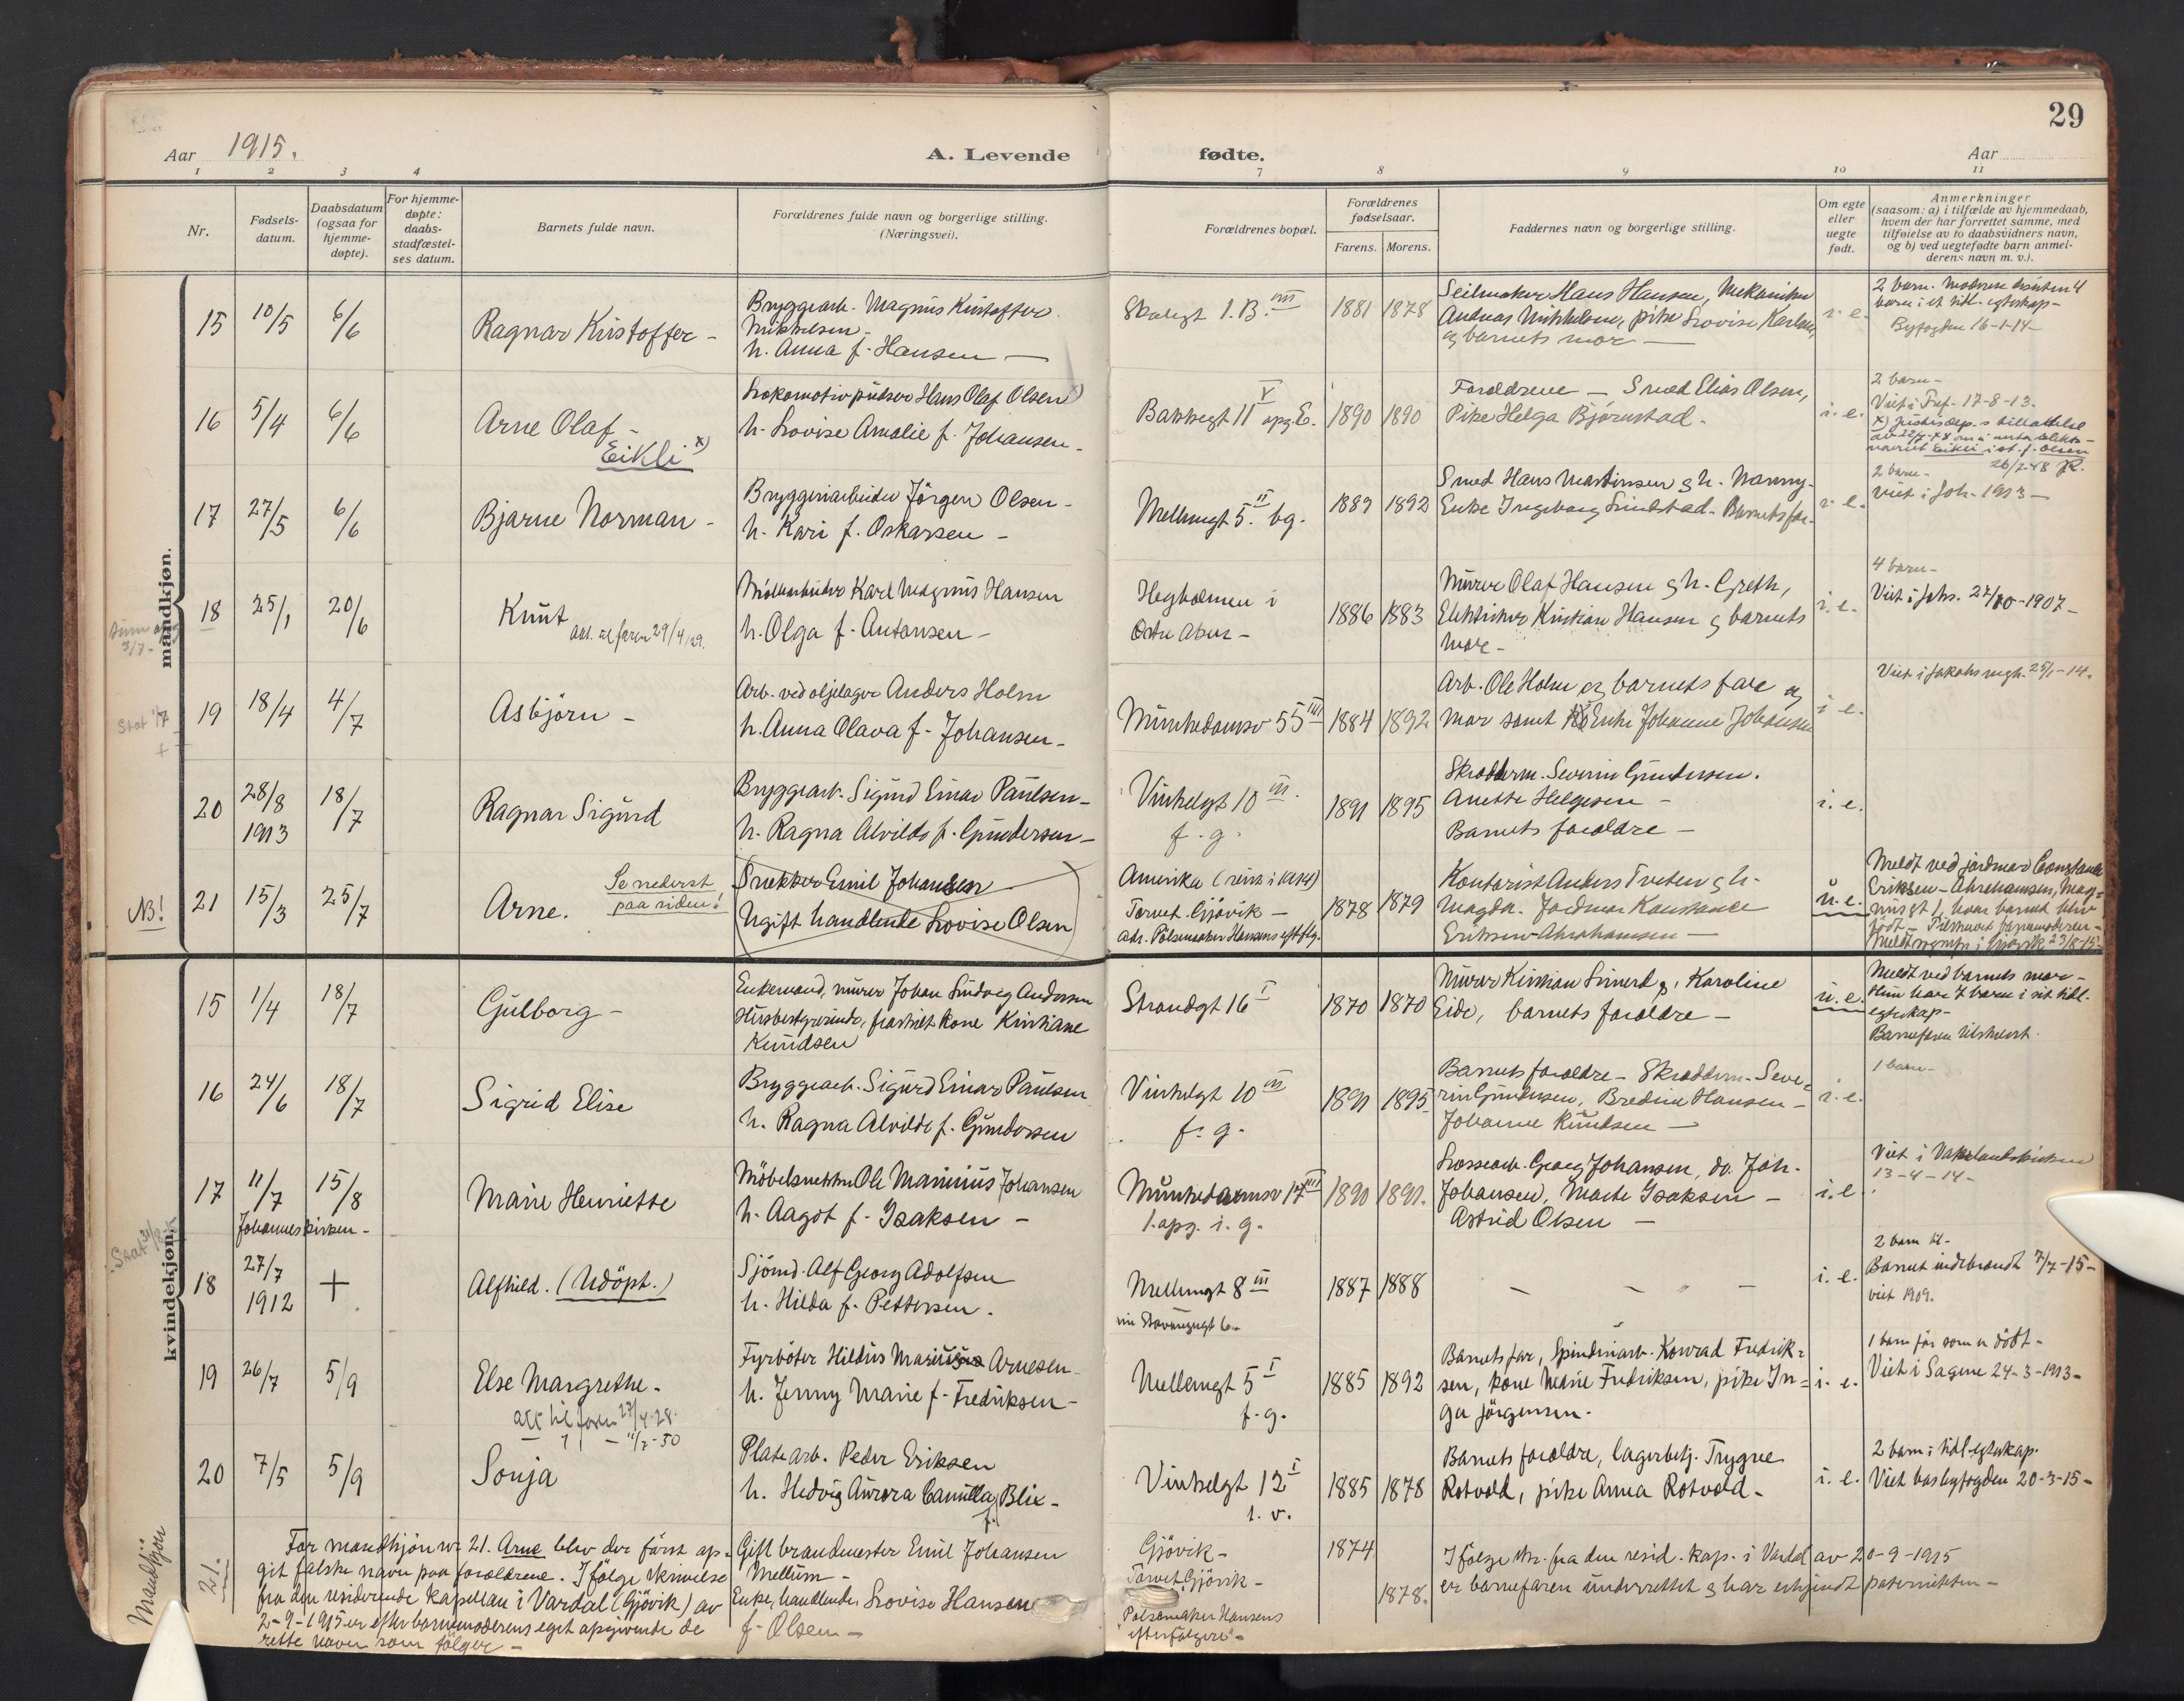 29
Aar 1915.
A. Levende
fødte.
Aar
1 2 3 4
7 8 9 10 11
Nr.
Fødsels-
datum.
Daabsdatum
(ogsaa for
hjemme-
døpte).
For hjemme-
døpte:
daabs-
stadfæstel-
ses datum.
Barnets fulde navn.
Forældrenes fulde navn og borgerlige stilling.
(Næringsvei).
Forældrenes bopæl.
Forældrenes
fødselsaar.
Farens. Morens.
Faddernes navn og borgerlige stilling.
Om egte
eller
uegte
født.
Anmerkninger
(saasom: a) i tilfælde av hjemmedaab,
hvem der har forrettet samme, med
tilføielse av to daabsvidners navn,
og b) ved uegtefødte barn anmel-
derens navn m. v.).
mandkjøn.
15 10/5 6/6
Ragnar Kristoffer -
Bryggearb. Magnus Kristoffer
Mikkelsen -
h. Anna f. Hansen -
1881 1878
Seilmaker Hans Hansen, Mekaniker
Andreas Mikkelsen, pike Lovise Karlsen,
og barnets mor -
i. e.
Byfogden 16-1-14-
16 5/4 6/6
Arne Olaf -
Eikli x)
Lokomotivpudser Hans Olaf Olsen x)
h. Lovise Amalie f. Johansen -
Bakkegt 11 V opg. E.
1890 1890
Forældrene - Smed Elias Olsen,
Pike Helga Björnstad.
i. e.
2 barn -
17-8-13.
navnet Eikli i st. f. Olsen
17 27/5 6/6
Bjarne Norman -
Bryggeriarbeider Jörgen Olsen -
h. Kari f. Oskarsen -
Mellumgt 5 II bg.
1889 1892
Smed Hans Martinsen og h. Nanny -
Enke Ingeborg Lindstad - Barnets far -
i. e.
2 barn -
viet i Joh. 1913 -
18 25/1 20/6
Knut
att. til faren 29/4 29.
Möllearbeider Karl Magnus Hansen
h. Olga f. Antonsen -
Hegholmen i
Östre Aker -
1886 1883
Murer Olaf Hansen og h. Greth,
Elektriker Kristian Hansen og barnets
mor -
i. e.
4 barn -
Viet i Johs. 27/10-1907 -
19 18/4 4/7
Asbjörn -
Arb. ved oljelager Anders Holm
h. Anna Olava f. Johansen -
Munkedamsv 55 III
1884 1892
Arb. Ole Holm og barnets far og
mor samt Enke Johanne Johansen
i e.
Viet i Jakobs mgh. 25/1-14.
20 28/8
1913 18/7
Ragnar Sigurd
Bryggearb. Sigurd Einar Paulsen -
h. Ragna Alvilde f. Gundersen -
Vinkelgt 10 III.
f. g.
1891 1895
Skrædderm. Severin Gundersen.
Anette Helgesen -
Barnets forældre -
i. e.
NB!
21 15/3 25/7
Arne.
Se nederst
paa siden!
Snekker Emil Johansen
Ugift handlende Lovise Olsen
Amerika (reist i 1914)
Torvet Gjövik -
adr. Pölsemaker Hansens eftflg.
1878 1879
Kontorist Anders Tveten og h.
Magda. Jordmor Konstance
Eriksen-Abrahamsen -
u. e.
Meldt ved jordmor Constance
Eriksen-Abrahamsen, Mag-
nusgt 1, hvor barnet blev
födt -
kvindekjøn.
15 1/4 18/7
Gulborg -
Enkemand, murer Johan Ludvig Andersen
Husbestyrerinde, fraskilt kone Kristiane
Knudsen
Strandgt 16 I
1870 1870
Eide, barnets forældre -
u. e.
Meldt ved barnets mor -
Hun har 7 barn i sit tidl.
egteskap -
Barnefaren tilskrevet.
16 24/6 18/7
Sigrid Elise
Bryggearb. Sigurd Einar Paulsen
h. Ragna Alvilde f. Gundersen
Vinkelgt 10 III
f. g.
1891 1895
Barnets forældre - Skrædderm. Seve-
rin Gundersen, Bredine Hansen -
Johanne Knudsen -
i. e.
1 barn -
17 11/7 15/8
Johanneskirken -
Marie Henriette
Möbelsnekker Ole Marinius Johansen
h. Aagot f. Isaksen -
Munkedamsv 17 III
1. opg. i. g.
1890 1891.
Lossearb. Georg Johansen, do. Joh.
Johansen, Marte Isaksen -
Astrid Olsen -
i. e.
13-4-14-
18 27/7
1912 +
Alfhild. (Udöpt.)
Sjömd. Alf Georg Adolfsen
h. Hilda f. Pettersen.
Mellumgt 8 III
1887 1888
i. e.
2 barn til -
Barnet indebrændt 7/7-15-
viet 1909.
19 26/7 5/9
Else Margrethe -
att til faren 27/4-28.
Fyrböter Hildus Marius Arnesen -
h. Jenny Marie f. Fredriksen -
Mellumgt 5 I
f. g.
1885 1892
Barnets far, Spinderiarb. Konrad Fredrik-
sen, kone Marie Fredriksen, pike In-
ga Jörgensen.
i. e.
1 barn för som er dödt -
Viet i Sagene 24-3-1913-
20 7/5 5/9
Sonja
Platearb. Peder Eriksen
h. Hedvig Aurora Camilla f. Blix -
Vinkelgt 12 I
1. v.
1885 1878
Barnets forældre, lagerbetj. Trygve
Rotvold, pike Anna Rotvold -
i. e.
2 barn i tidl egteskap.
Viet hos byfogden 20-3-15-
Mandkjön
21.
For mandkjön nr 21. Arne blev der först op-
git falske navn paa forældrene. Ifölge skrivelse
fra den residerende kapellan i Vardal (Gjövik) av
2-9-1915 er efter barnemoderens eget opgivende de
rette navn som fölger -
Gift brandmester Emil Johansen
Mellum -
Enke, handlende Lovise Hansen
f. Olsen -
Gjövik -
Torvet Gjövik -
Pölsemaker Hansens
efterfölgere" -
1874
1878.
Ifölge skr. fra den resid. kap. i Vardal av 20-9-1915
er barnefaren underrettet og har erkjendt paterniteten -